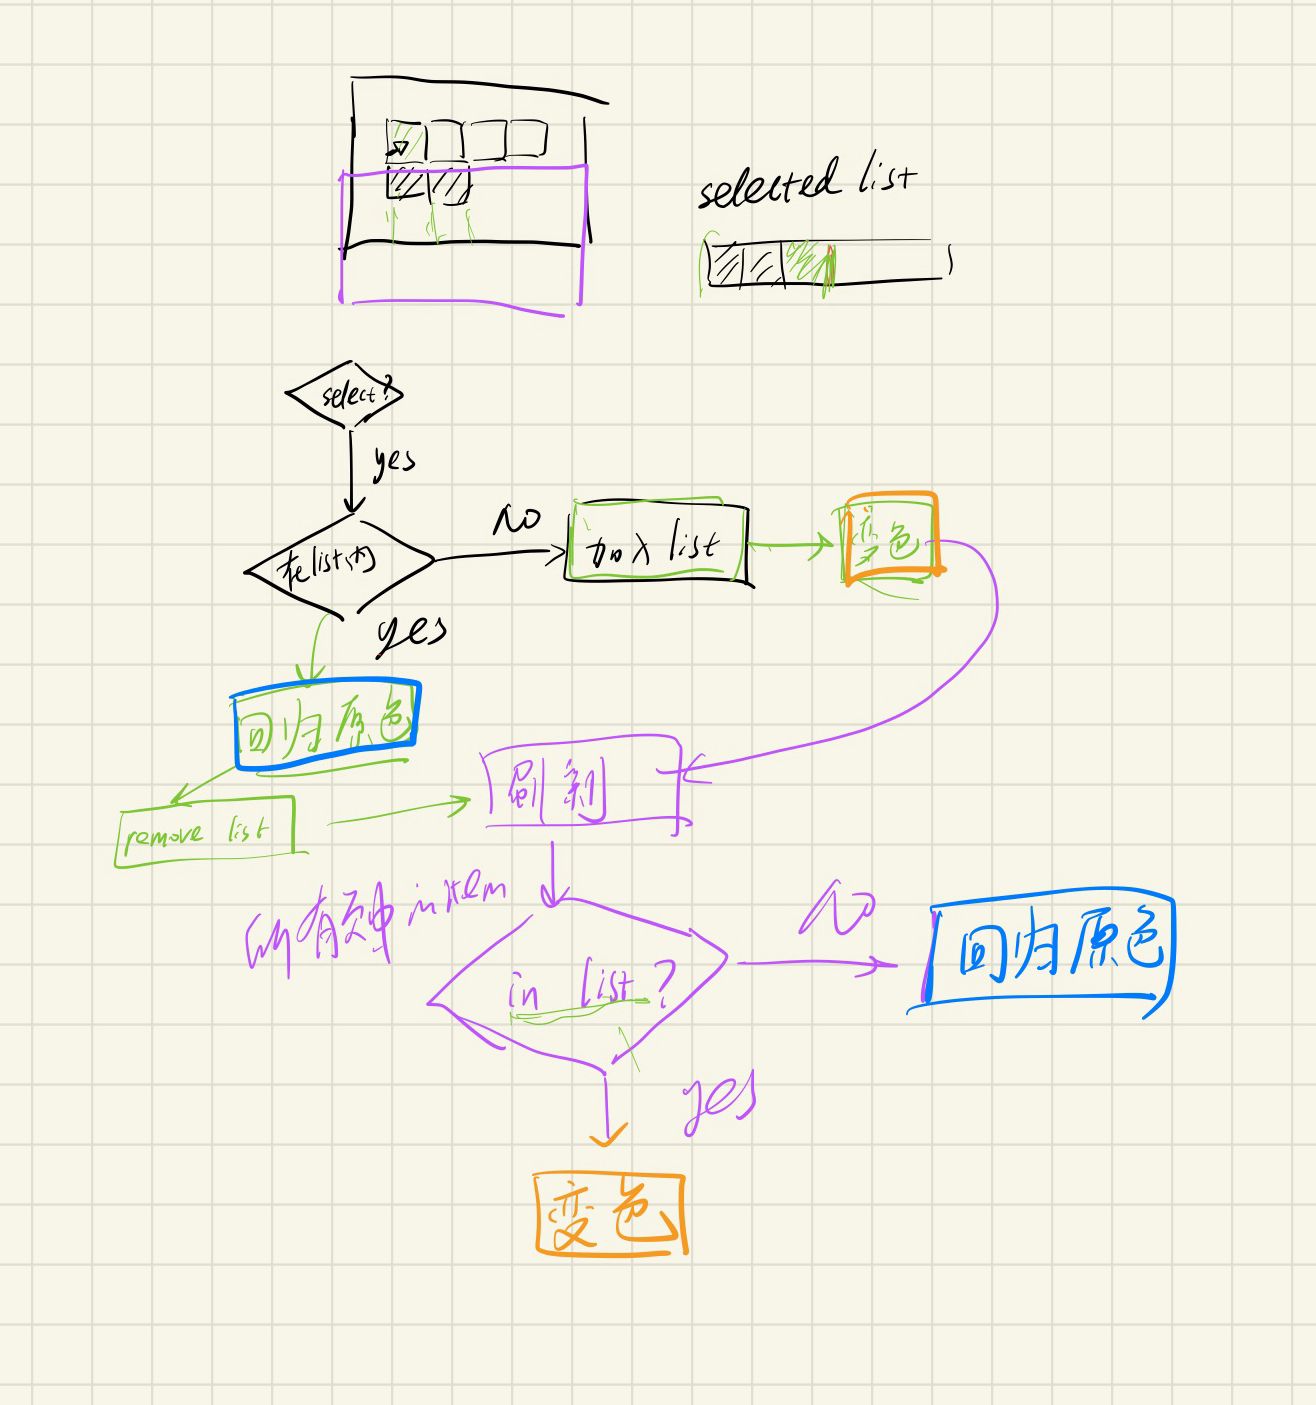 selected list
select?
yes
在list内
NO
加入 list
变色
yes
回归原色
remove list
刷新
所有 item
in list?
NO
回归原色
yes
变色